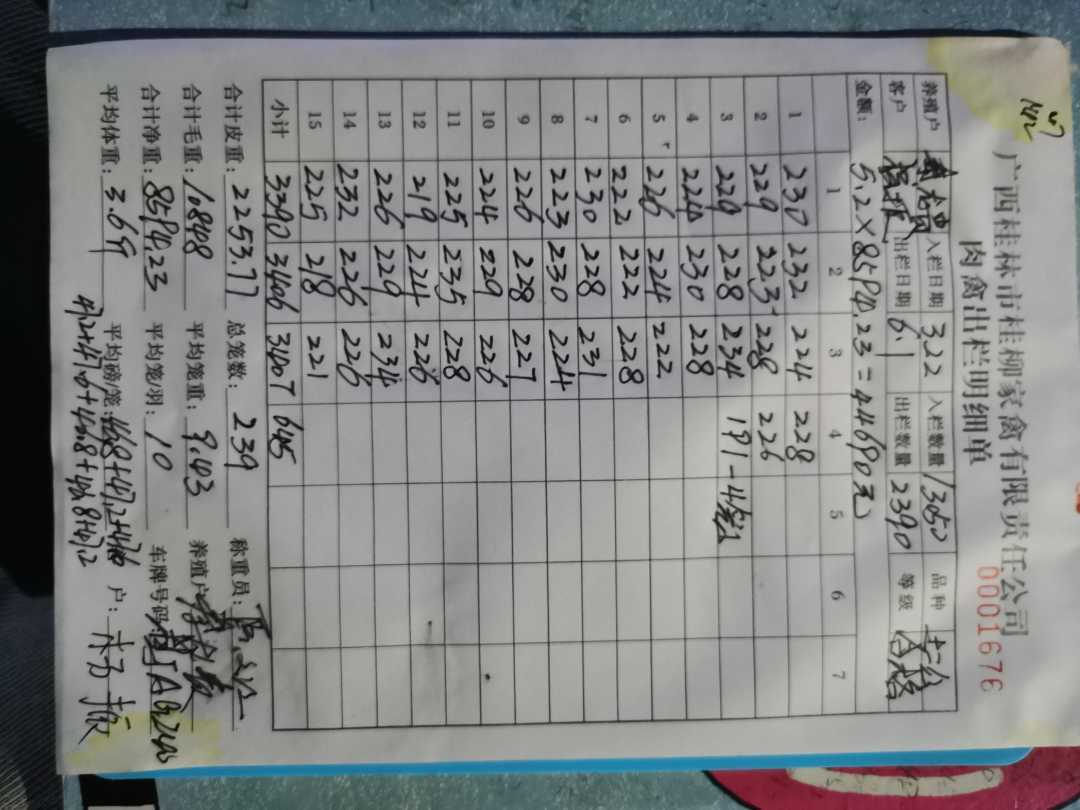 广西桂林市桂柳家禽有限责任公司
肉禽出栏明细单
0001676
养殖户 入栏日期 3.22 入栏数量 13050 品种 土二
客户 出栏日期 6.1 出栏数量 2390 等级
金额: 5.2×8594.23=44690元
1 2 3 4 5 6 7
1 230 232 224 228
2 229 223 228 226
3 229 228 234 191-4
4 224 230 228
5 226 224 222
6 222 222 228
7 230 228 231
8 223 230 224
9 226 228 227
10 224 229 226
11 225 235 228
12 219 224 226
13 226 229 234
14 232 226 226
15 225 218 221
小计 3390 3406 3407 645
合计皮重: 2253.77 总笼数: 239 称重员:
合计毛重: 10848 平均笼重: 9.43 养殖户
合计净重: 8594.23 平均笼/羽: 10 车牌号码
平均体重: 3.59 平均磅/笼: 户: